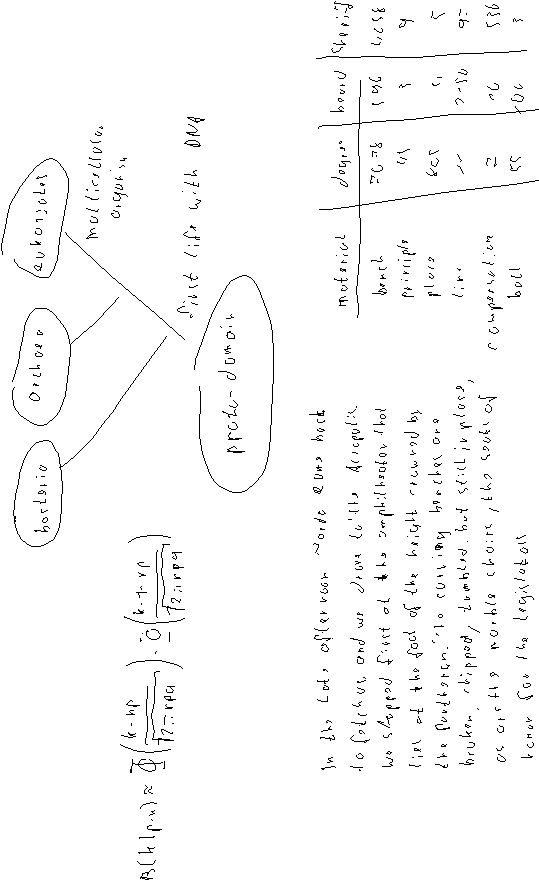 bacteria archaea eukaryotes
multicellular
organism
first life with DNA
proto-domain
In the late afternoon came back
to fetch us, and we drove to the Acropolis
we stopped first at the amphitheater that
lies at the foot of the height crowned by
the Parthenon. The curving benches are
broken, chipped, tumbled, but still in place,
as are the marble chairs, the seats of
honor for the legislators
material degree board sheriff
bench 7678 596 4258
principle 45 3 9
place 865 4 5
line
compensation 2 536
ball 55 3